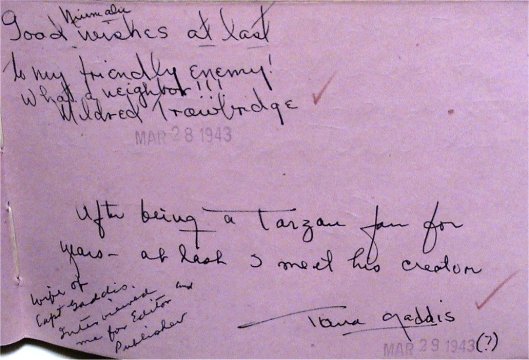 Good wishes at last
to my friendly enemy!
What a neighbor!!!
Mildred Trowbridge
MAR 28 1943
After being a Tarzan fan for
years - at last I meet his creator
Wife of
Capt Gaddis.
Interviewed
me for Editor and
Publisher
Gaddis
MAR 29 1943 (?)